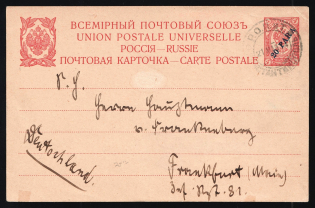 ВСЕМІРНЫЙ ПОЧТОВЫЙ СОЮЗЪ
UNION POSTALE UNIVERSELLE
РОССІЯ—RUSSIE
ПОЧТОВАЯ КАРТОЧКА—CARTE POSTALE
20 PARA
S. H.
Herrn Hauptmann
v. Frankenberg
Deutschland.
Frankfurt (Main)
Inf. Rgt. 81.